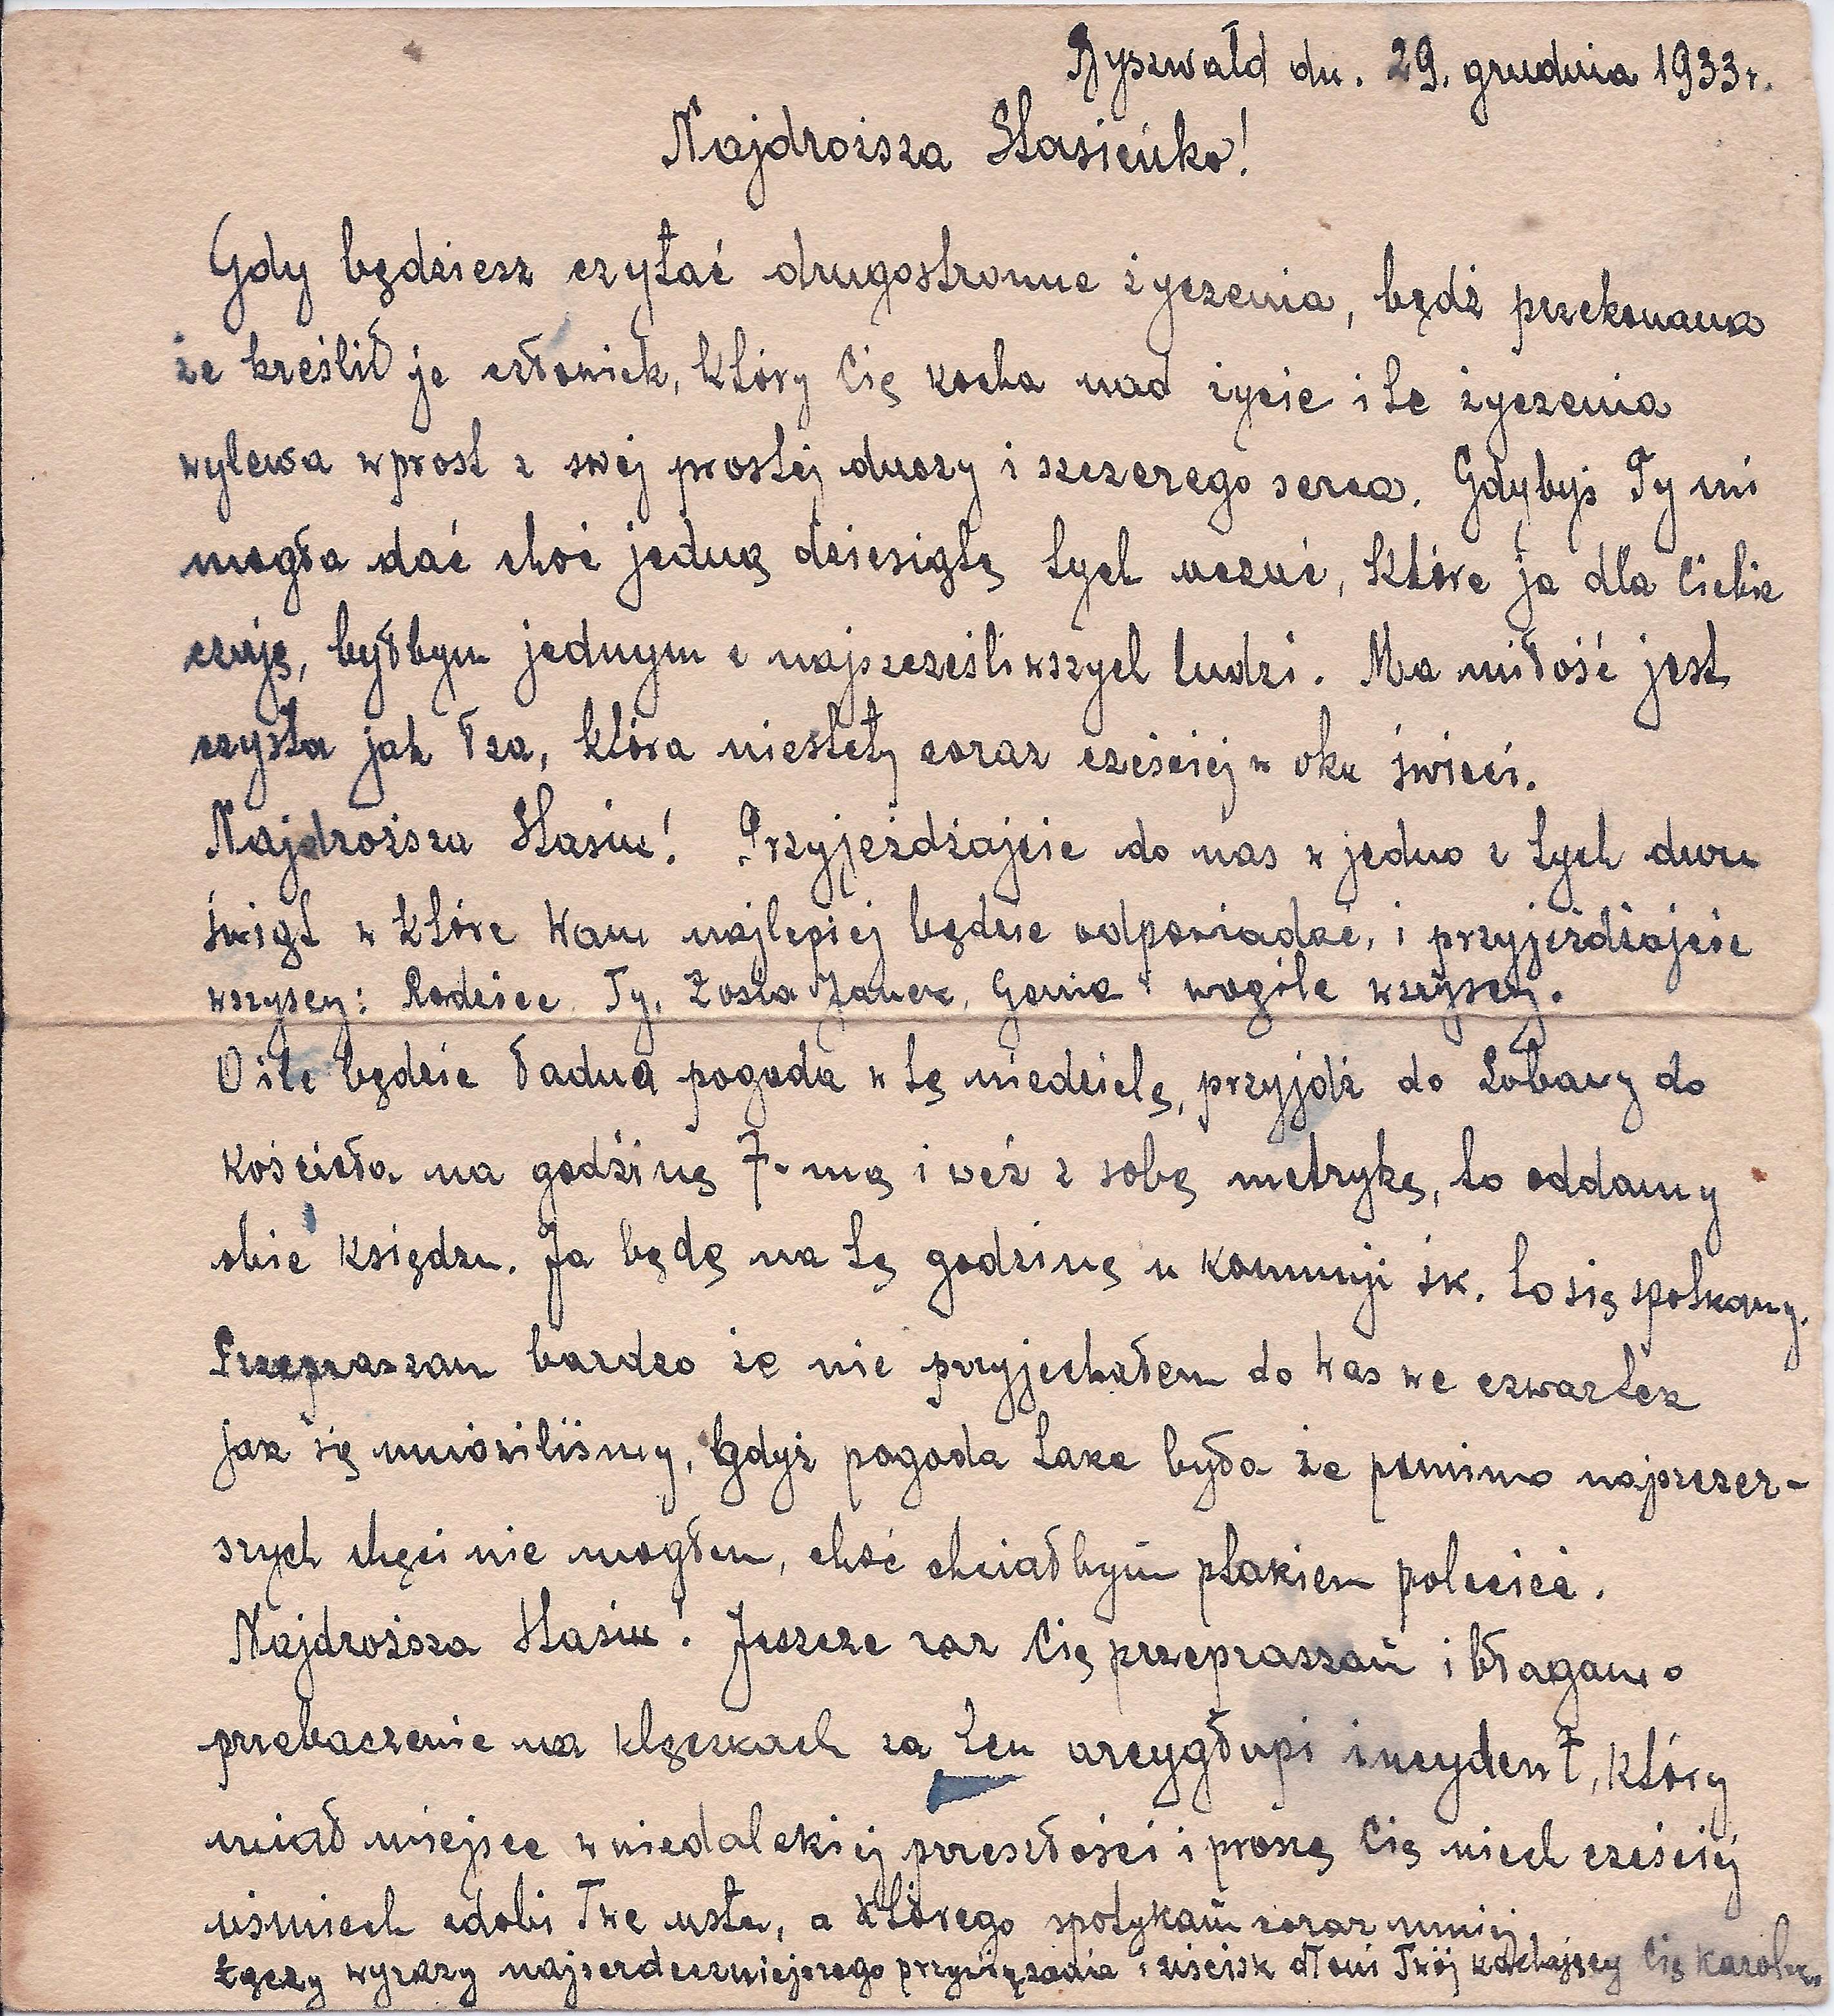 Ryszwałd dn. 29. grudnia 1933 r.
Najdroższa Stasieńko!
Gdy będziesz czytać drugostronne życzenia, bądź przekonana
że kreślił je człowiek, który Cię kocha nad życie i te życzenia
wylewa wprost z swej prostej duszy i szczerego serca. Gdybyś Ty mi
mogła dać choć jedną dziesiątą tych uczuć, które ja dla Ciebie
czuję, byłbym jednym z najszcześliwszych ludzi. Ma miłość jest
czysta jak łza, która niestety coraz cześciej w oku świeci.
Najdroższa Stasiu! Przyjeżdżajcie do nas w jedno z tych dwu
świąt w które Wam najlepiej będzie odpowiadać, i przyjeżdżajcie
wszyscy: Rodzice Ty, Zosia Janek, Genia i wogóle wszyscy.
O ile będzie ładna pogoda w tę niedzielę, przyjdź do Lobawy do
Kościoła na godzinę 7-mą i weź z sobą metrykę, to oddamy
obie Księdzu. Ja będę na tę godzinę u Komunji św. to się spotkamy.
Przepraszam bardzo że nie przyjechałem do Was we czwartek
jak się umówiliśmy, gdyż pogoda taka była że pomimo najszczer-
szych chęci nie mogłem, choć chciałbym ptakiem polecieć.
Najdroższa Stasiu! Jeszcze raz Cię przepraszam i błagam o
przebaczenie na klęczkach za ten arcygłupi incydent, który
miał miejsce w niedalekiej przeszłości i proszę Cię niech cześciej
uśmiech zdobi Twe usta, a którego spotykam coraz mniej
Łączy wyrazy najserdeczniejszego przywiązania i uścisk dłoni Twój kochający Cię Karol